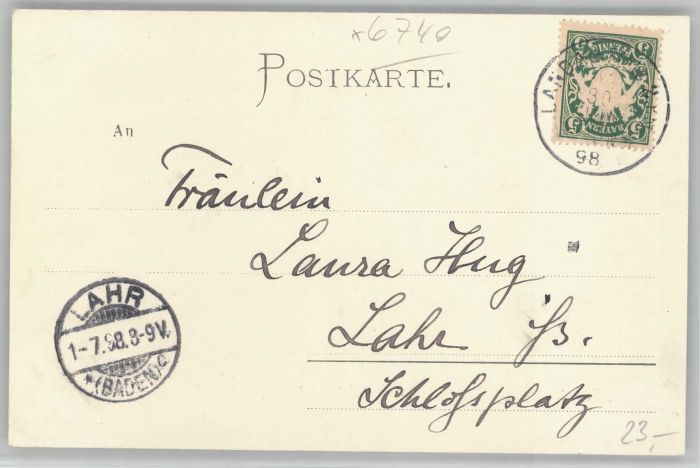 *6740
POSTKARTE.
An
Fräulein
Laura Hug
Lahr i/B.
Schloßplatz
LAHR
1-7.98.8-9V.
*(BADEN)c
PFENNIG
BAYERN
5 5
5 5
LAND
30
98
23,-